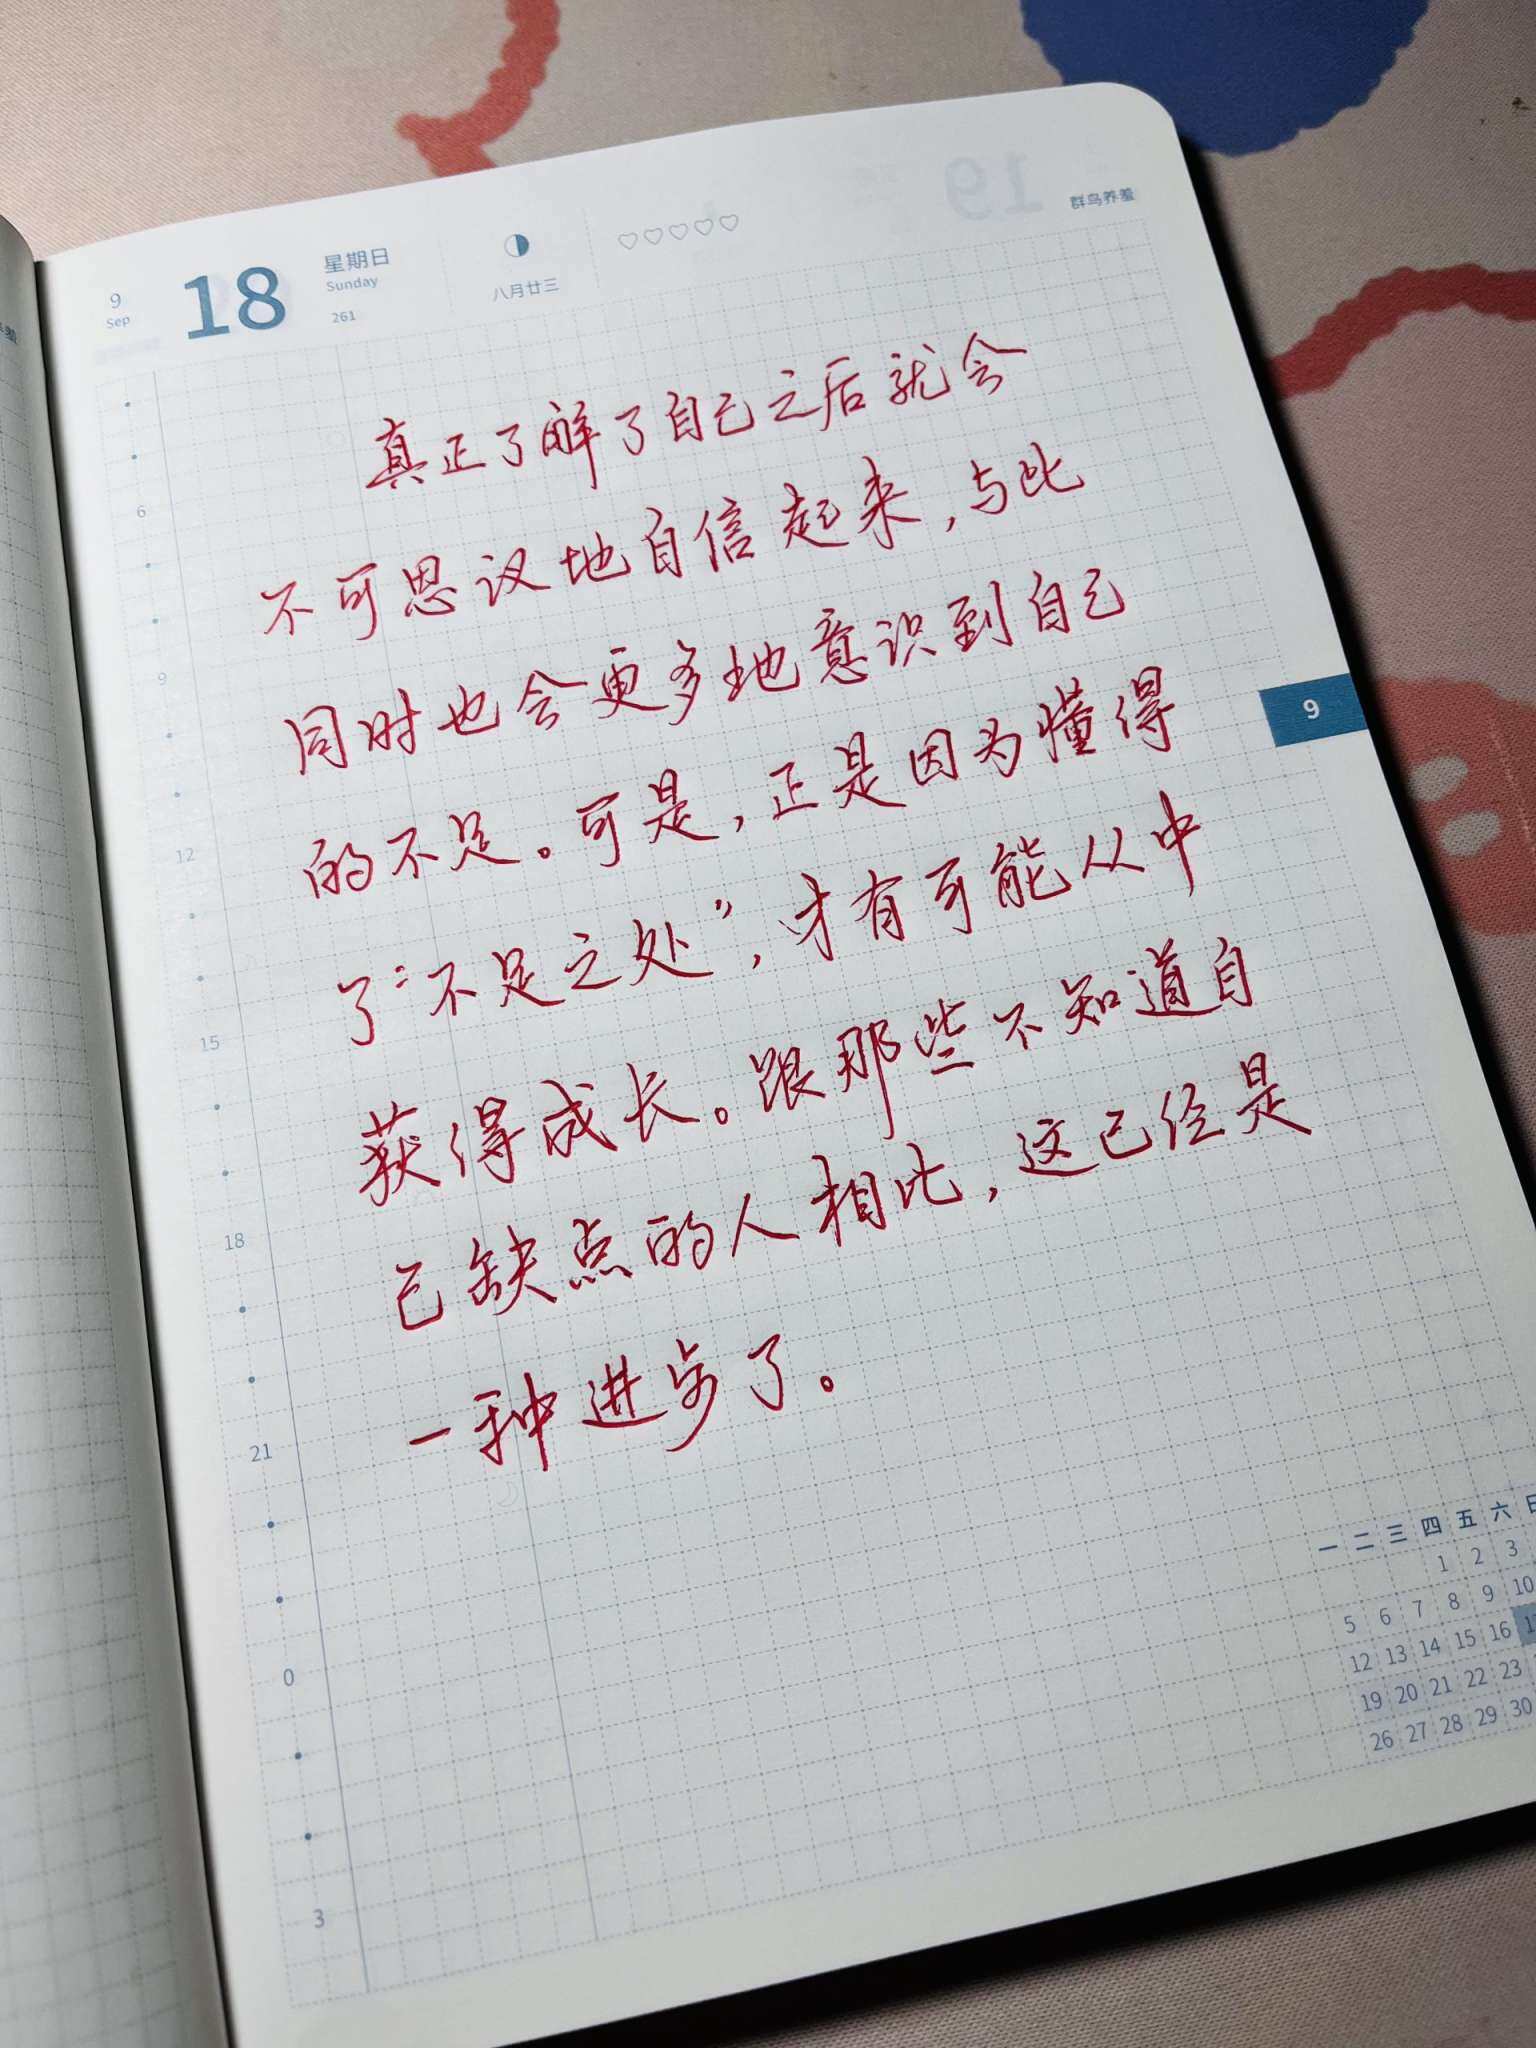 9
Sep
18
星期日
Sunday
261
八月廿三
群鸟养羞
真正了解了自己之后就会
不可思议地自信起来，与此
同时也会更多地意识到自己
的不足。可是，正是因为懂得
了“不足之处”，才有可能从中
获得成长。跟那些不知道自
己缺点的人相比，这已经是
一种进步了。
6
9
12
15
18
21
0
3
9
一 二 三 四 五 六 日
1 2 3
5 6 7 8 9 10
12 13 14 15 16
19 20 21 22 23
26 27 28 29 30